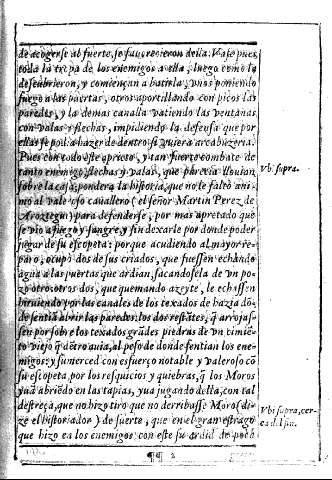 de acogerse al fuerte, se fauorecieron della. Vase pues
toda la tropa de los enemigos a ella, luego como la
descubrieron, y comiençan a batirla, vnos poniendo
fuego a las puertas, otros aportillando con picos las
paredes, y la demas canalla batiendo las ventanas
con valas y flechas, impidiendo la defensa que por
ellas se podia hazer de dentro si quiera arcabuzeria.
Pues con todo este aprieto, y tan fuerte combate de
tanto enemigo, flechas y valas, que parecia llouian
sobre la casa, pondera la historia, que no le faltò ani-
mo al valeroso cauallero (el señor Martin Perez de
Aroztegui) para defenderse, por mas apretado que
se vio a fuego y sangre, y sin dexarle por donde poder
jugar de su escopeta: porque acudiendo al mayor re-
paro, ocupò dos de sus criados, que fuessen echando
agua a las puertas que ardian, sacandosela de vn po-
zo otros otros dos, que quemando azyte, le echassen
hiruiendo por las canales de los texados de hazia dō-
de sentia abrir las paredes: los dos restātes, q̄ arrojas-
sen por sobre los texados grādes piedras de vn cimiē-
to viejo q̄ dētro auia, al peso de donde sentian los ene-
migos: y su merced con esfuerço notable y valeroso cō
su escopeta por los resquicios y quiebras, q̄ los Moros
yuā abriēdo en las tapias, yua jugando della, con tal
destreça, que no hizo tiro que no derribasse Moros (di-
ze el historiador) de suerte, que en el gran estrago
que hizo en los enemigos con este su ardid de poca
¶¶ 2
Vbi supra.
Vbi supra, cer-
ca del fin.